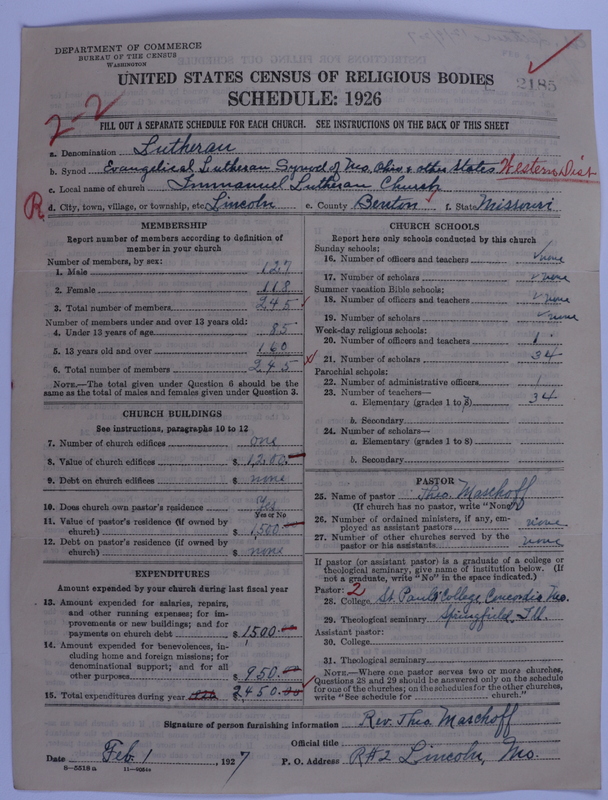 DEPARTMENT OF COMMERCE
BUREAU OF THE CENSUS
WASHINGTON
UNITED STATES CENSUS OF RELIGIOUS BODIES
SCHEDULE: 1926
2185
2-2
FILL OUT A SEPARATE SCHEDULE FOR EACH CHURCH. SEE INSTRUCTIONS ON THE BACK OF THIS SHEET
a. Denomination Lutheran
b. Synod Evangelical Lutheran Synod of Mo. Ohio & other States Western Dist
c. Local name of church Immanuel Lutheran Church
R. d. City, town, village, or township, etc. Lincoln e. County Benton f. State Missouri
MEMBERSHIP
Report number of members according to definition of
member in your church
Number of members, by sex:
1. Male 127
2. Female 118
3. Total number of members 245
Number of members under and over 13 years old:
4. Under 13 years of age 85
5. 13 years old and over 160
6. Total number of members 245
NOTE.—The total given under Question 6 should be the
same as the total of males and females given under Question 3.
CHURCH BUILDINGS
See instructions, paragraphs 10 to 12
7. Number of church edifices one
8. Value of church edifices $ 1200.
9. Debt on church edifices $ none
10. Does church own pastor's residence? Yes
Yes or No
11. Value of pastor's residence (if owned by
church) $ 1500
12. Debt on pastor's residence (if owned by
church) $ none
EXPENDITURES
Amount expended by your church during last fiscal year
13. Amount expended for salaries, repairs,
and other running expenses; for im-
provements or new buildings; and for
payments on church debt $ 1500.
14. Amount expended for benevolences, in-
cluding home and foreign missions; for
denominational support; and for all
other purposes $ 950.
15. Total expenditures during year $ 2450.
CHURCH SCHOOLS
Report here only schools conducted by this church
Sunday schools:
16. Number of officers and teachers none
17. Number of scholars none
Summer vacation Bible schools:
18. Number of officers and teachers none
19. Number of scholars none
Week-day religious schools:
20. Number of officers and teachers 1
21. Number of scholars 34
Parochial schools:
22. Number of administrative officers 1
23. Number of teachers—
a. Elementary (grades 1 to 8) 34
b. Secondary
24. Number of scholars—
a. Elementary (grades 1 to 8)
b. Secondary
PASTOR
25. Name of pastor Theo. Maschoff
(If church has no pastor, write "None")
26. Number of ordained ministers, if any, em-
ployed as assistant pastors none
27. Number of other churches served by the
pastor or his assistants none
If pastor (or assistant pastor) is a graduate of a college or
theological seminary, give name of institution below. (If
not a graduate, write "No" in the space indicated.)
Pastor: 2
28. College St. Paul's College, Concordia Mo.
29. Theological seminary Springfield, Ill.
Assistant pastor:
30. College
31. Theological seminary
NOTE.—Where one pastor serves two or more churches,
Questions 28 and 29 should be answered only on the schedule
for one of the churches; on the schedules for the other churches,
write "See schedule for church."
Signature of person furnishing information Rev. Theo. Maschoff
Official title
Date Feb. 1, 1927 P. O. Address R#2 Lincoln, Mo.
8—5518a 11—9051a